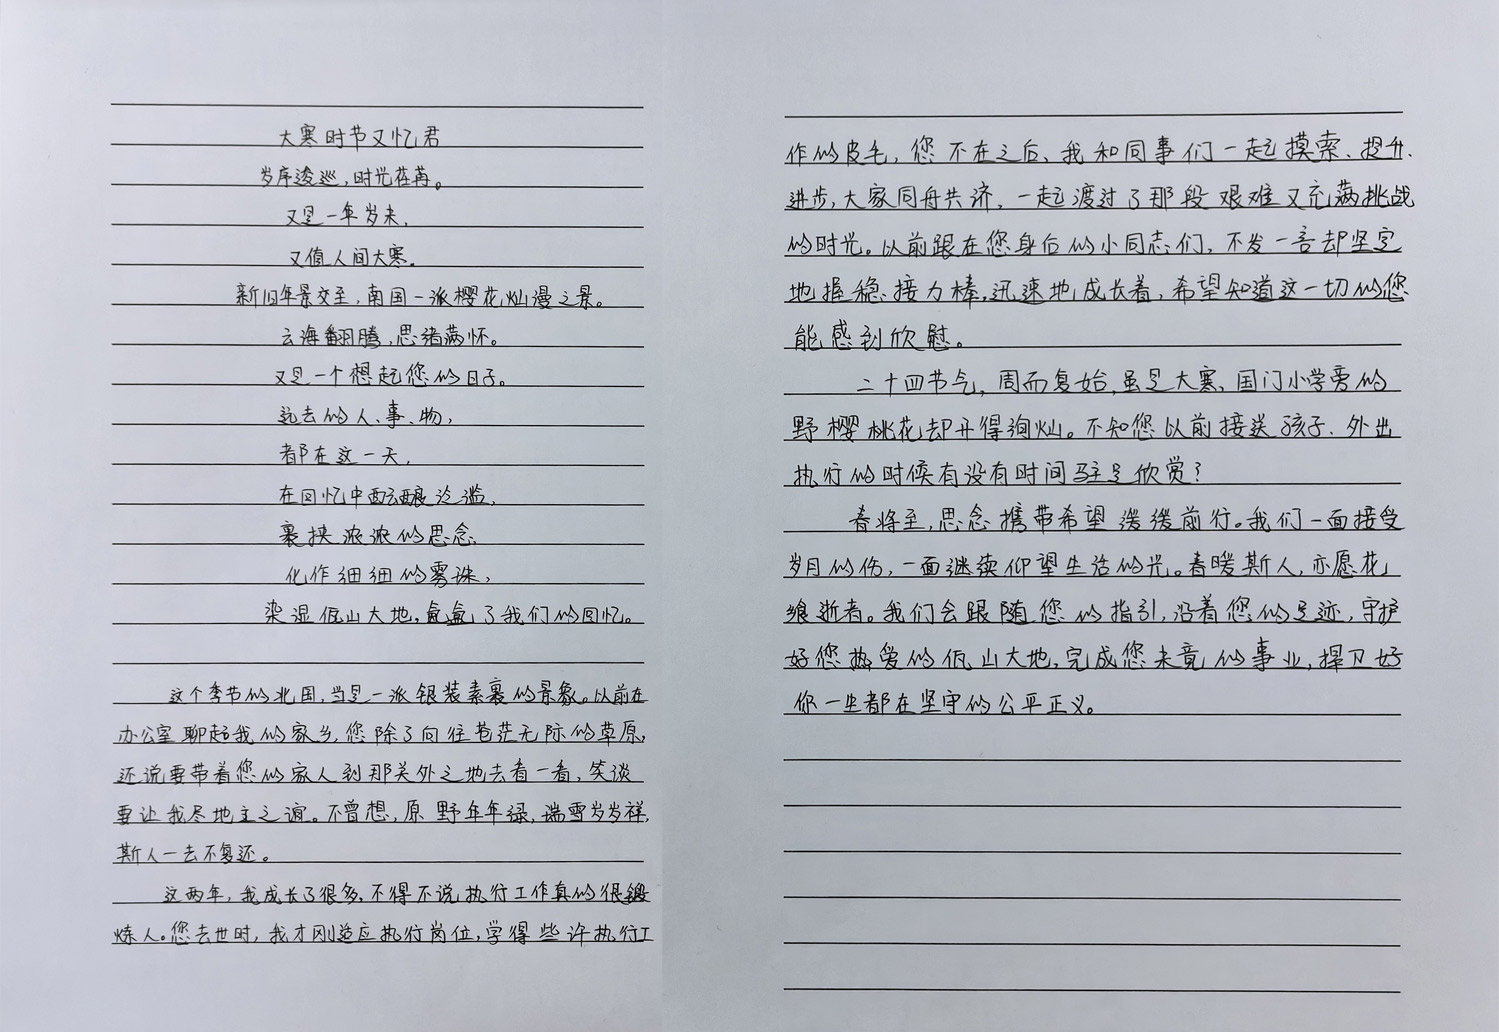 大寒时节又忆君
岁序逡巡，时光荏苒。
又是一年岁末，
又值人间大寒。
新旧年景交至，南国一派樱花灿漫之景。
云海翻腾，思绪满怀。
又是一个想起您的日子。
远去的人、事、物，
都在这一天，
在回忆中酝酿泛滥，
裹挟浓浓的思念，
化作细细的雾珠，
染湿佤山大地，氤氲了我们的回忆。
这个季节的北国，当是一派银装素裹的景象。以前在
办公室聊起我的家乡，您除了向往苍茫无际的草原，
还说要带着您的家人到那关外之地去看一看，笑谈
要让我尽地主之谊。不曾想，原野年年绿，瑞雪岁岁祥，
斯人一去不复还。
这两年，我成长了很多，不得不说执行工作真的很锻
炼人。您去世时，我才刚适应执行岗位，学得些许执行工
作的皮毛，您不在之后，我和同事们一起摸索、提升、
进步，大家同舟共济，一起渡过了那段艰难又充满挑战
的时光。以前跟在您身后的小同志们，不发一言却坚定
地握稳接力棒，迅速地成长着，希望知道这一切的您
能感到欣慰。
二十四节气，周而复始，虽是大寒，国门小学旁的
野樱桃花却开得绚灿。不知您以前接送孩子、外出
执行的时候有没有时间驻足欣赏？
春将至，思念携带希望缓缓前行。我们一面接受
岁月的伤，一面继续仰望生活的光。春暖斯人，亦愿花
飨逝者。我们会跟随您的指引，沿着您的足迹，守护
好您热爱的佤山大地，完成您未竟的事业，捍卫好
你一生都在坚守的公平正义。